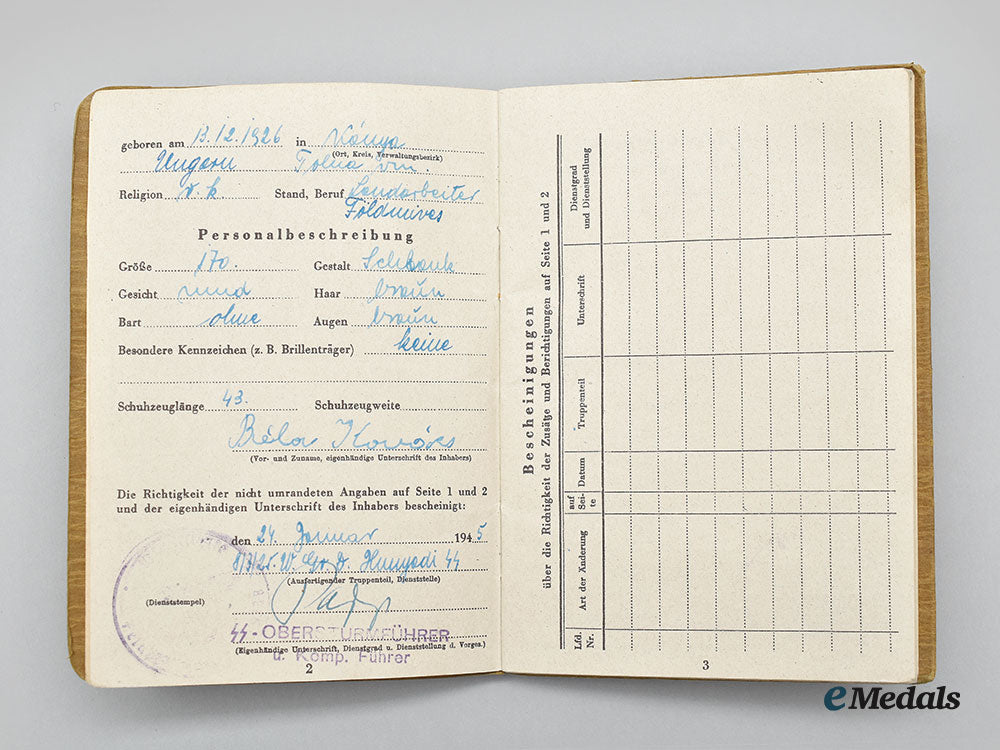 geboren am 13.12.1926 in Kónya
(Ort, Kreis, Verwaltungsbezirk)
Ungarn Tolna vm.
Religion r. k. Stand, Beruf Landarbeiter
Földmíves
Personalbeschreibung
Größe 170. Gestalt Schlank
Gesicht rund Haar braun
Bart ohne Augen braun
Besondere Kennzeichen (z. B. Brillenträger) keine
Schuhzeuglänge 43. Schuhzeugweite
Béla Kovács
(Vor- und Zuname, eigenhändige Unterschrift des Inhabers)
Die Richtigkeit der nicht umrandeten Angaben auf Seite 1 und 2
und der eigenhändigen Unterschrift des Inhabers bescheinigt:
den 24. Januar 1945
W. Gr. D. Hunyadi SS
(Ausfertigender Truppenteil, Dienststelle)
(Dienststempel)
SS-OBERSTURMFÜHRER
(Eigenhändige Unterschrift, Dienstgrad u. Dienststellung d. Vorges.)
u. Komp. Führer
2
Bescheinigungen
über die Richtigkeit der Zusätze und Berichtigungen auf Seite 1 und 2
Lfd. Nr.
Art der Änderung
auf Sei- te
Datum
Truppenteil
Unterschrift
Dienstgrad und Dienststellung
3
eMedals